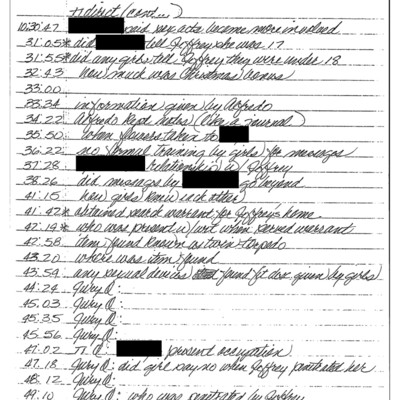 direct (cont...)
10:30:47 said sex acts became more involved
31:05* did tell Jeffrey she was 17
31:55* did any girls tell Jeffrey they were under 18
32:43 how much was Christmas bonus
33:00
33:34 information given by Alfredo
34:22 Alfredo kept notes (like a journal)
35:50 when flowers taken to
36:22 no formal training by girls for massages
37:28 relationship w/ Jeffrey
38:26 did massages by go beyond
41:15 how girls knew each other
41:42* obtained search warrant for Jeffrey's home
42:19* who was present w/ wit when served warrant
42:58 item found known as twin torpedo
43:20 where was item found
43:59 any sexual devices found (it doc given by girls)
44:24 Jury Q:
45:03 Jury Q:
45:35 Jury Q:
45:56 Jury Q:
47:02 Q: present occupation
47:18 Jury Q: did girl say no when Jeffrey penetrated her
48:12 Jury Q:
49:10 Jury Q: who was penetrated by Jeffrey